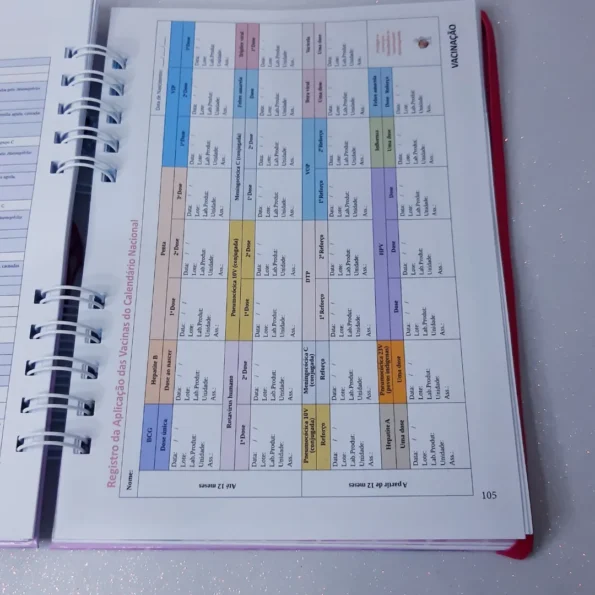 VACINAÇÃO
Registro da Aplicação das Vacinas do Calendário Nacional
Nome:
Data de Nascimento:
Até 12 meses
BCG
Hepatite B
Penta
VIP
Dose única
Dose ao nascer
1ª Dose
2ª Dose
3ª Dose
1ª Dose
2ª Dose
3ª Dose
Data: / /
Lote:
Lab.Produt:
Unidade:
Ass.:
Data: / /
Lote:
Lab.Produt:
Unidade:
Ass.:
Data: / /
Lote:
Lab.Produt:
Unidade:
Ass.:
Data: / /
Lote:
Lab.Produt:
Unidade:
Ass.:
Data: / /
Lote:
Lab.Produt:
Unidade:
Ass.:
Data: / /
Lote:
Lab.Produt:
Unidade:
Ass.:
Data: / /
Lote:
Lab.Produt:
Unidade:
Ass.:
Data: / /
Lote:
Lab.Produt:
Unidade:
Ass.:
Rotavírus humano
Pneumocócica 10V (conjugada)
Meningocócica C (conjugada)
Febre amarela
Tríplice viral
1ª Dose
2ª Dose
1ª Dose
2ª Dose
1ª Dose
2ª Dose
Dose
1ª Dose
Data: / /
Lote:
Lab.Produt:
Unidade:
Ass.:
Data: / /
Lote:
Lab.Produt:
Unidade:
Ass.:
Data: / /
Lote:
Lab.Produt:
Unidade:
Ass.:
Data: / /
Lote:
Lab.Produt:
Unidade:
Ass.:
Data: / /
Lote:
Lab.Produt:
Unidade:
Ass.:
Data: / /
Lote:
Lab.Produt:
Unidade:
Ass.:
Data: / /
Lote:
Lab.Produt:
Unidade:
Ass.:
Data: / /
Lote:
Lab.Produt:
Unidade:
Ass.:
A partir de 12 meses
Pneumocócica 10V
(conjugada)
Meningocócica C
(conjugada)
DTP
VOP
Tetra viral
Varicela
Reforço
Reforço
1º Reforço
2º Reforço
1º Reforço
2º Reforço
Uma dose
Uma dose
Data: / /
Lote:
Lab.Produt:
Unidade:
Ass.:
Data: / /
Lote:
Lab.Produt:
Unidade:
Ass.:
Data: / /
Lote:
Lab.Produt:
Unidade:
Ass.:
Data: / /
Lote:
Lab.Produt:
Unidade:
Ass.:
Data: / /
Lote:
Lab.Produt:
Unidade:
Ass.:
Data: / /
Lote:
Lab.Produt:
Unidade:
Ass.:
Data: / /
Lote:
Lab.Produt:
Unidade:
Ass.:
Data: / /
Lote:
Lab.Produt:
Unidade:
Ass.:
Hepatite A
Pneumocócica 23V
(povos indígenas)
HPV
Influenza
Febre amarela
Uma dose
Uma dose
Dose
Dose
Dose
Uma dose
Dose Reforço
Data: / /
Lote:
Lab.Produt:
Unidade:
Ass.:
Data: / /
Lote:
Lab.Produt:
Unidade:
Ass.:
Data: / /
Lote:
Lab.Produt:
Unidade:
Ass.:
Data: / /
Lote:
Lab.Produt:
Unidade:
Ass.:
Data: / /
Lote:
Lab.Produt:
Unidade:
Ass.:
Data: / /
Lote:
Lab.Produt:
Unidade:
Ass.:
Data: / /
Lote:
Lab.Produt:
Unidade:
Ass.:
105